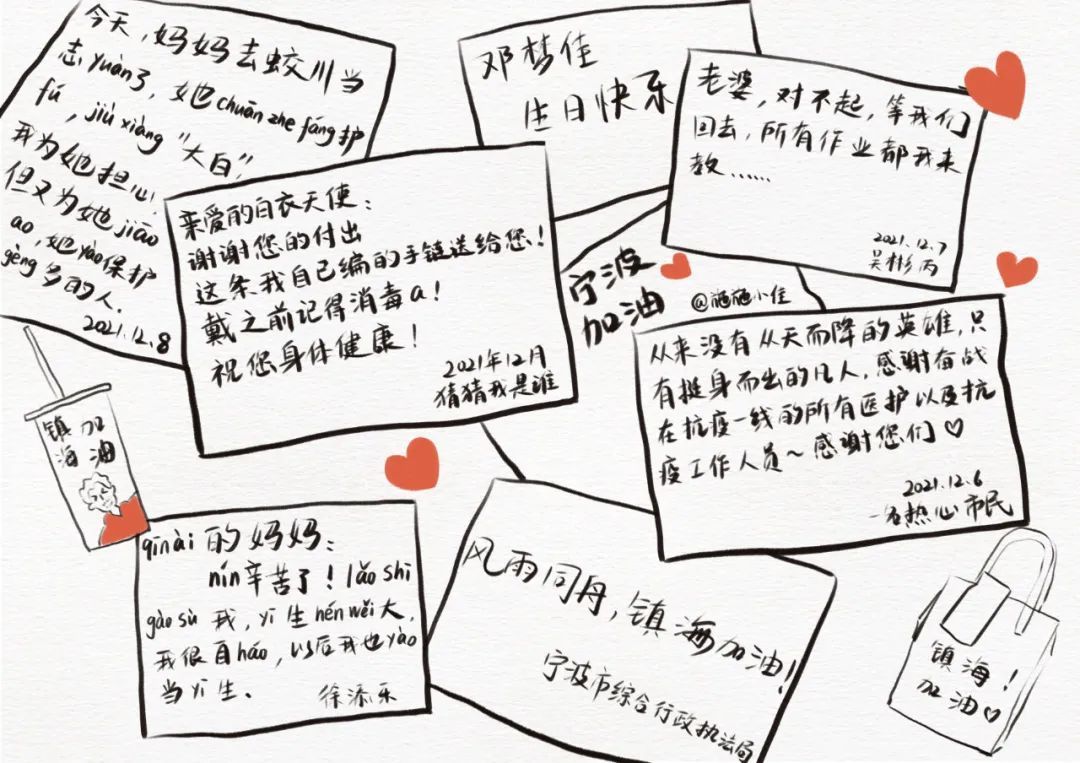 今天，妈妈去蛟川当
志yuàn了，她chuān zhe fáng护
fú，jiù xiàng“大白”，
我为她担心！
但又为她jiāo
ao，她yào保护
gèng多的人．
2021.12.8
邓梦佳
生日快乐
老婆，对不起，等我们
回去，所有作业都我来
教……
2021.12.7
吴彬丙
亲爱的白衣天使：
谢谢您的付出
这条我自己编的手链送给您！
戴之前记得消毒a！
祝您身体健康！
2021年12月
猜猜我是谁
宁波
加油
@施施小佳
从来没有从天而降的英雄，只
有挺身而出的凡人，感谢奋战
在抗疫一线的所有医护以及抗
疫工作人员～感谢您们♡
2021.12.6
一名热心市民
镇海
加油
qīnài的妈妈：
nín辛苦了！lǎo shī
gào sù 我，yī生hén wěi大，
我很自háo，以后我也yào
当yī生．
徐添乐
风雨同舟，镇海加油！
宁波市综合行政执法局
镇海！
加油♡